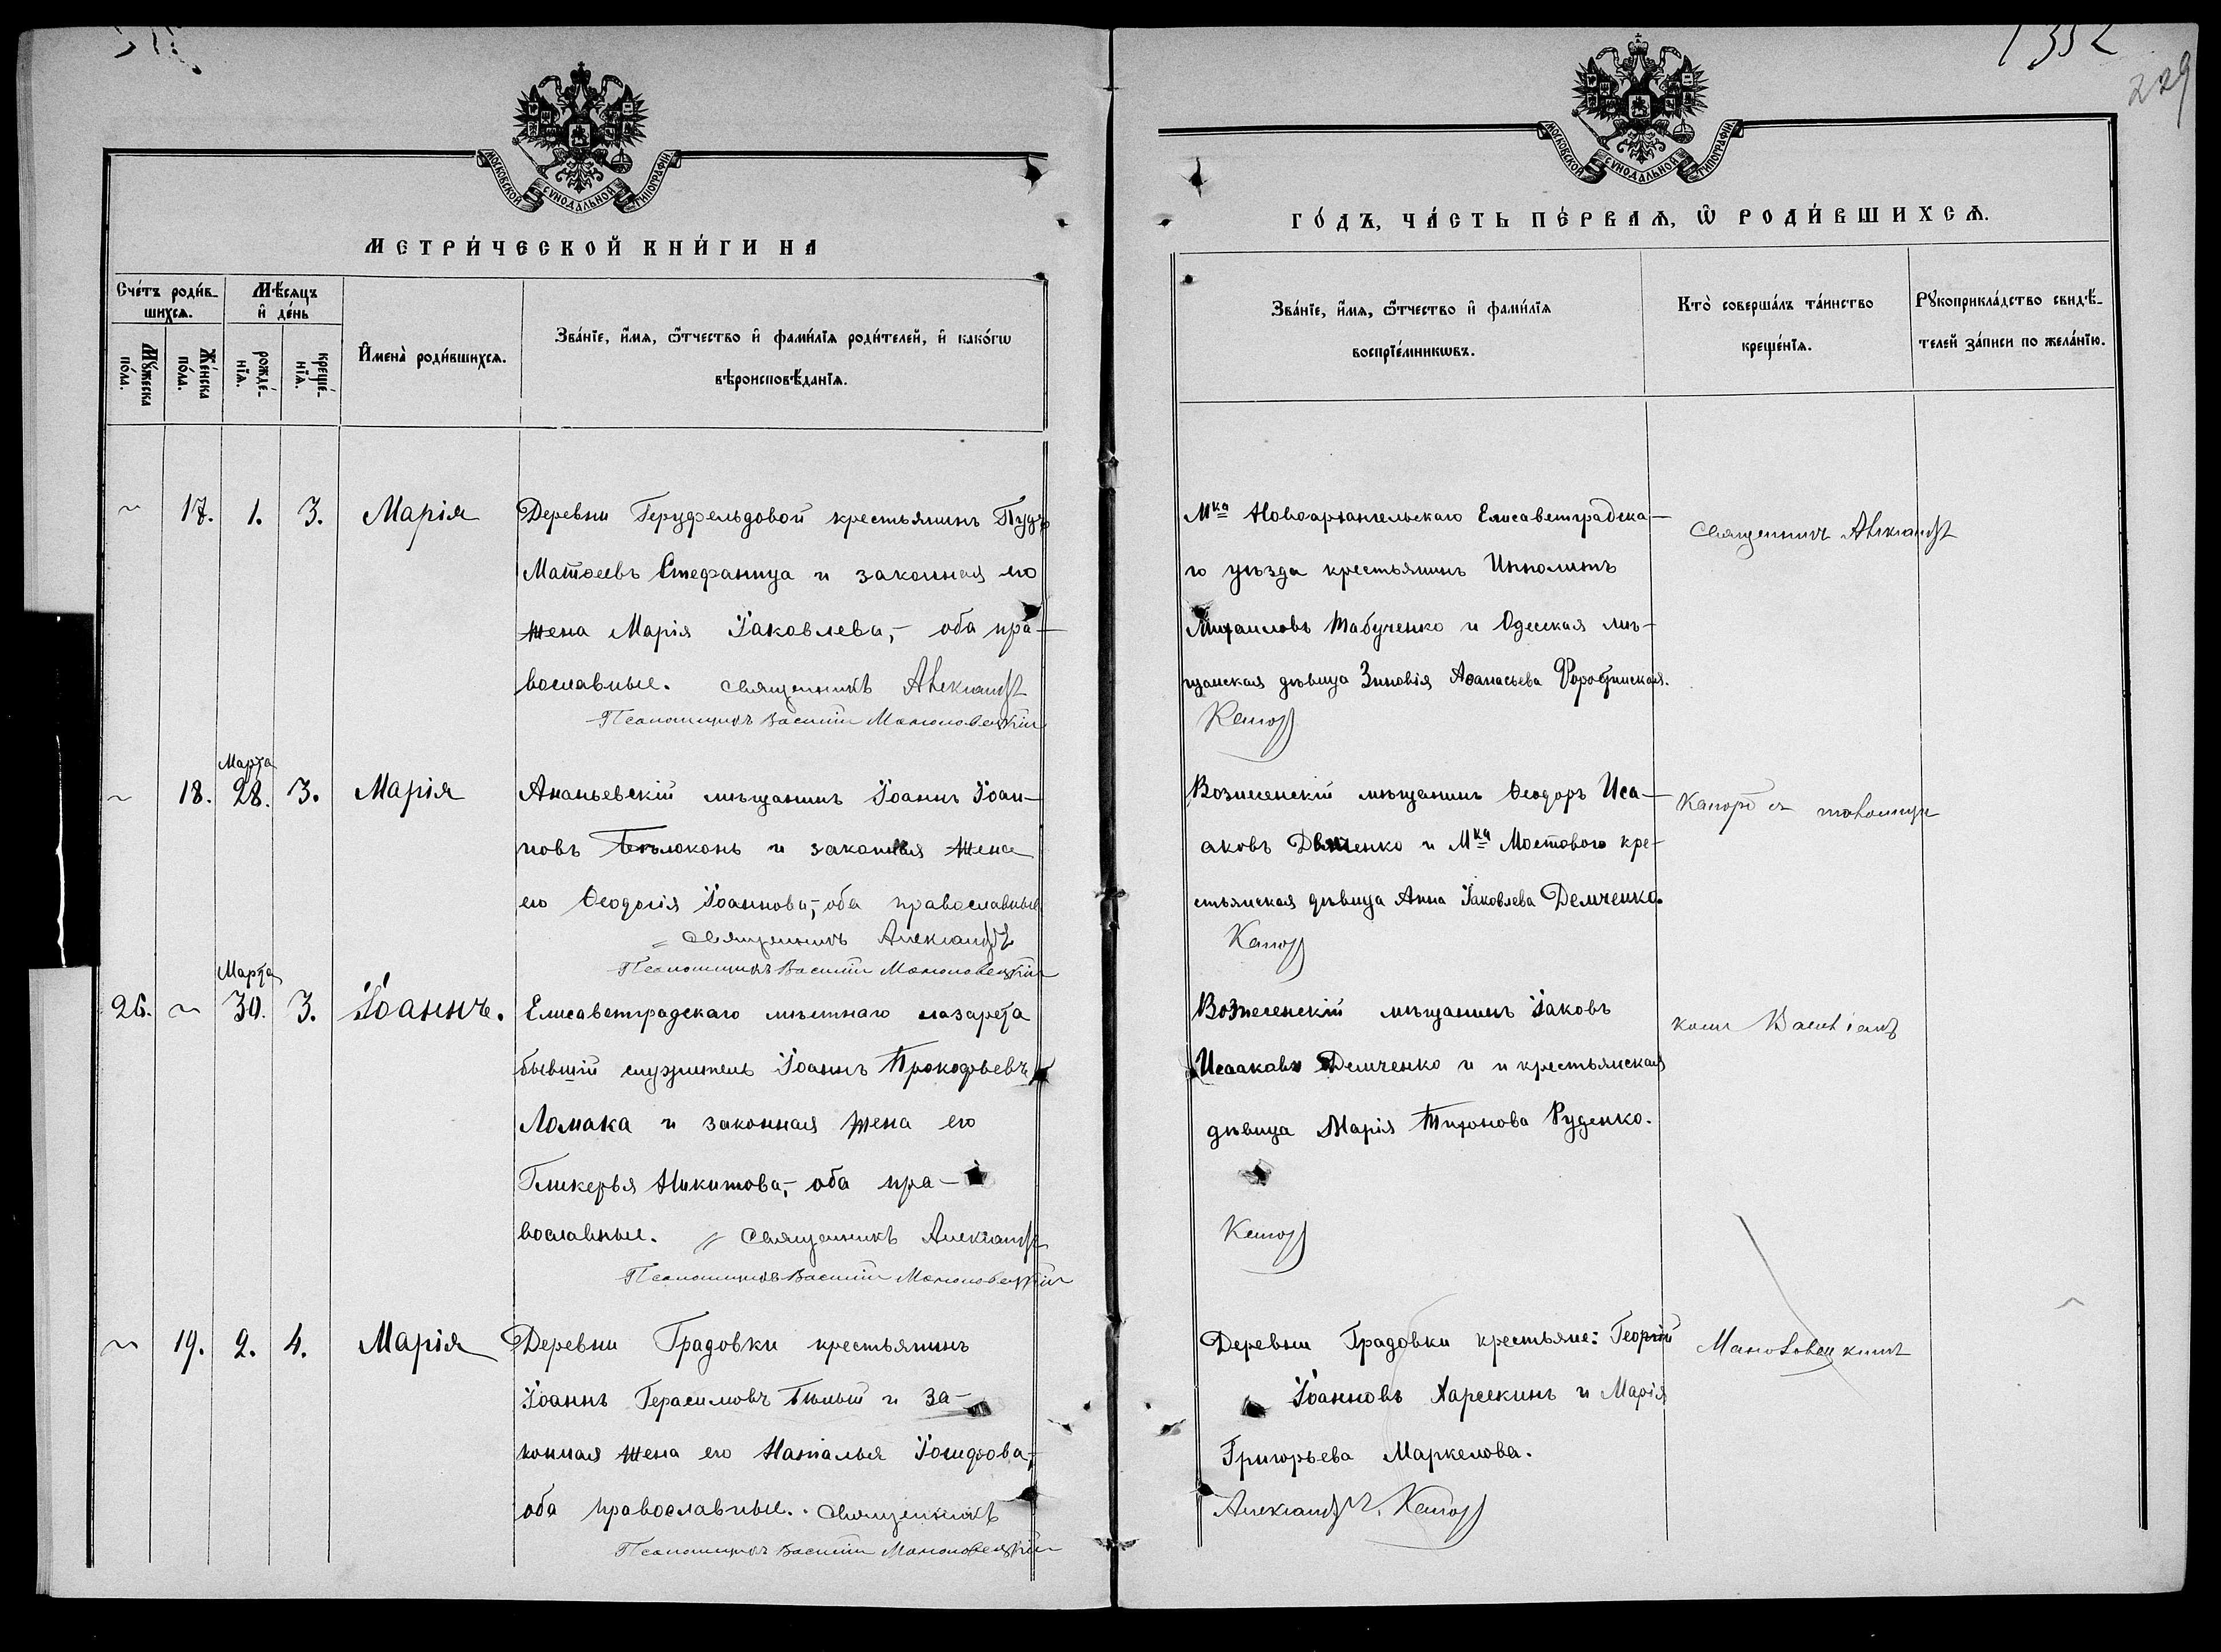 1352
229
МОСКОВСКОЙ СѴНОДАЛЬНОЙ ТИПОГРАФІИ
МОСКОВСКОЙ СѴНОДАЛЬНОЙ ТИПОГРАФІИ
МЕТРИ́ЧЕСКОЙ КНИ́ГИ НА
Сче́тъ роди́в-
шихсѧ.
Мѣ́сяцъ
и҆ де́нь
Мꙋ́жеска по́ла.
Же́нска по́ла.
рожде́-нїѧ.
креще́-нїѧ.
И҆мена̀ роди́вшихсѧ.
Зва́нїе, и҆́мѧ, ѻ҆́тчество и҆ фами́лїѧ роди́телей, и҆ како́гѡ
вѣроисповѣ́данїѧ.
~ 17. 1. 3. Марія Деревни Геруфельдовой крестьянинъ Пудъ
Матѳеевъ Стефаница и законная его
жена Марія Іаковлева,- оба пра-
вославные. Священникъ
Псаломщикъ Василій Маньковецкій
~ 18. Марта 28. 3. Марія Ананьевскій мѣщанинъ Іоаннъ Іоан-
новъ Бѣлоконь и законная жена
его Ѳеодосія Іоаннова,- оба православные
Священникъ Александръ
Псаломщикъ Василій Маньковецкій
26. ~ Марта 30. 3. Іоаннъ. Елисаветградскаго мѣстнаго лазарета
бывшій служитель Іоаннъ Прокофьевъ
Ломака и законная жена его
Гликерья Никитова,- оба пра-
вославные. Священникъ Александръ
Псаломщикъ Василій Маньковецкій
~ 19. 2. 4. Марія Деревни Градовки крестьянинъ
Іоаннъ Герасимовъ Бѣлый и за-
конная жена его Наталья Іосифова,-
оба православные. Священникъ
Псаломщикъ Василій Маньковецкій
ГО́ДЪ, ЧА́СТЬ ПЕ́РВАѦ, Ѡ҆ РОДИ́ВШИХСѦ.
Зва́нїе, и҆́мѧ, ѻ҆́тчество и҆ фами́лїѧ
воспрїе́мникѡвъ.
Кто̀ соверша́лъ та́инство
креще́нїѧ.
Рꙋкоприкла́дство свидѣ́-
телей за́писи по жела́нїю.
Мка Новоархангельскаго Елисаветградска-
го уѣзда крестьянинъ Ипполитъ
Михаиловъ Табученко и Одесская мѣ-
щанская дѣвица Зиновія Аѳанасьева
Священникъ
Вознесенскій мѣщанинъ Ѳеодоръ Иса-
аковъ и Мка Мостового кре-
стьянская дѣвица Анна Іаковлева Демченко.
Вознесенскій мѣщанинъ Іаковъ
Исааковъ Демченко и и крестьянская
дѣвица Марія Тихонова Руденко.
Деревни Градовки крестьяне: Георгій
Іоанновъ Харсекинъ и Марія
Григорьева Маркелова.
Александръ